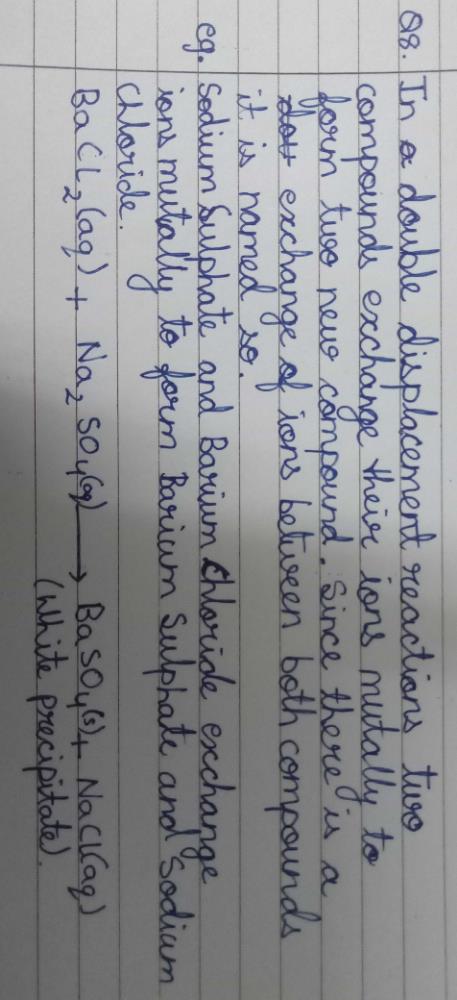 Q8. In a double displacement reactions two
compounds exchange their ions mutally to
form two new compound. Since there is a
exchange of ions between both compounds
it is named so.
eg. Sodium Sulphate and Barium Chloride exchange
ions mutally to form Barium Sulphate and Sodium
Chloride.
BaCl₂(aq) + Na₂SO₄(aq) → BaSO₄(s) + NaCl(aq)
(White precipitate).